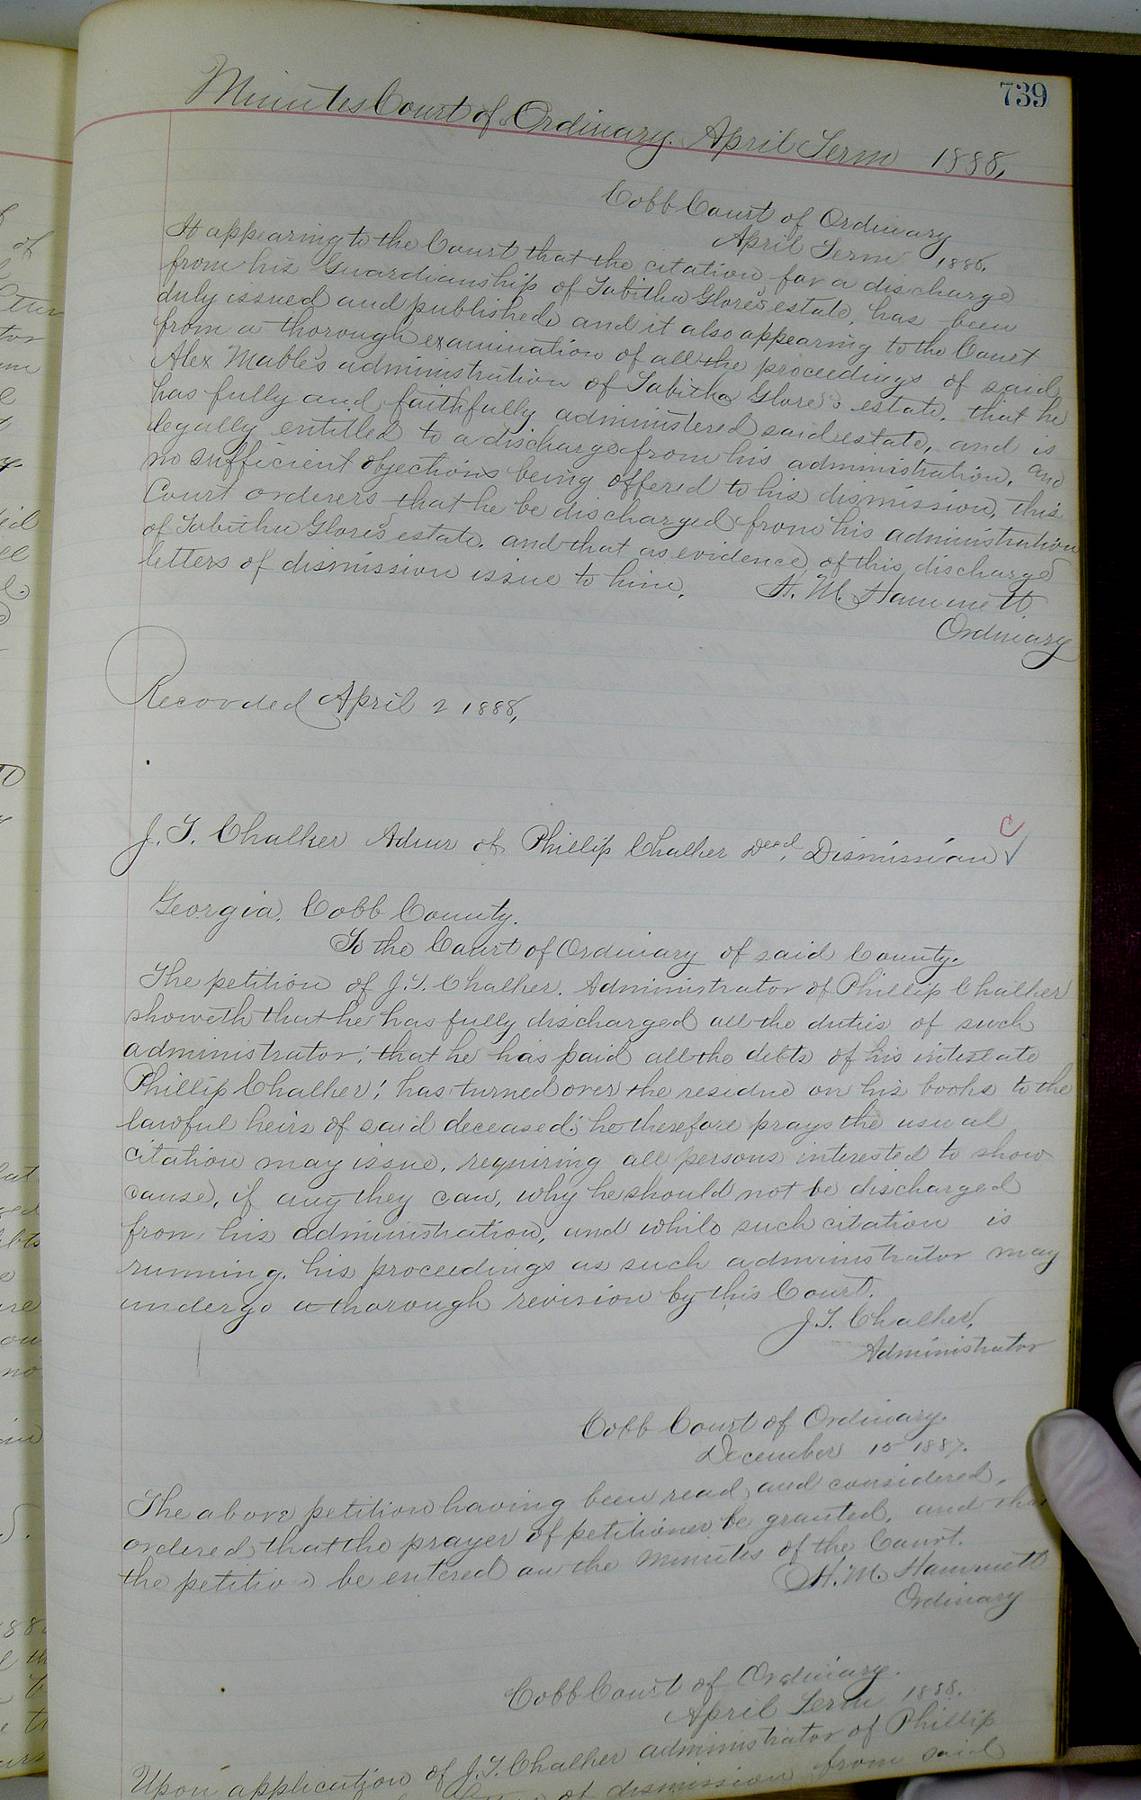 739
Minutes Court of Ordinary. April Term 1888.
Cobb Court of Ordinary
April Term 1888.
It appearing to the Court that the citation for a discharge
from his Guardianship of Tabitha Glore's estate, has been
duly issued and published, and it also appearing to the Court
from a thorough examination of all the proceedings of said
Alex Mable's administration of Tabitha Glore's estate, that he
has fully and faithfully administered said estate, and is
legally entitled to a discharge from his administration, and
no sufficient objections being offered to his dismission, this
Court orderers that he be discharged from his administration
of Tabitha Glore's estate. and that as evidence of this discharge
letters of dismission issue to him.
H. M. Hammett
Ordinary
Recorded April 2 1888,
J. T. Chalker Admr of Phillip Chalker Decd. Dismission
Georgia, Cobb County.
To the Court of Ordinary of said County.
The petition of J. T. Chalker. Administrator of Phillip Chalker
showeth that he has fully discharged all the duties of such
administrator; that he has paid all the debts of his intestate
Phillip Chalker; has turned over the residue on his books to the
lawful heirs of said deceased; he therefore prays the usual
citation may issue, requiring all persons interested to show
cause, if any they can, why he should not be discharged
from his administration, and while such citation is
running, his proceedings as such administrator may
undergo a thorough revision by this Court.
J. T. Chalker,
Administrator
Cobb Court of Ordinary.
December 15 1887.
The above petition having been read and considered,
ordered, that the prayer of petitioner be granted, and that
the petition be entered on the minutes of the Court.
H. M. Hammett
Ordinary
Cobb Court of Ordinary.
April Term 1888.
Upon application of J. T. Chalker administrator of Phillip
of dismission from said